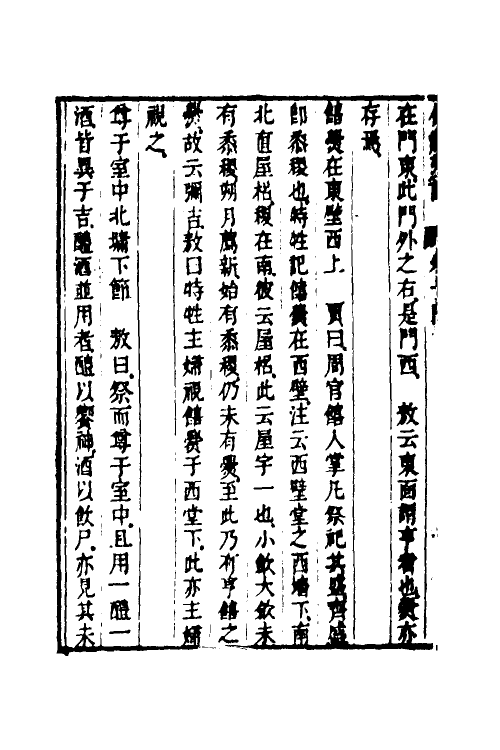 在門東此門外之右是門西　敖云東面謂亨者也爨亦
存焉
饎爨在東壁西上　賈曰周官饎人掌凡祭祀共盛齊盛
卽黍稷也特牲記饎爨在西壁注云西壁堂之西墻下南
北直屋梠稷在南彼云屋梠此云屋宇一也小斂大斂未
有黍稷朔月薦新始有黍稷仍未有爨至此乃有亨饎之
爨故云彌吉敖曰特牲主婦視饎爨于西堂下此亦主婦
視之
尊于室中北墉下節　敖曰祭而尊于室中且用一醴一
酒皆異于吉醴酒並用者醴以饗神酒以飮尸亦見其未